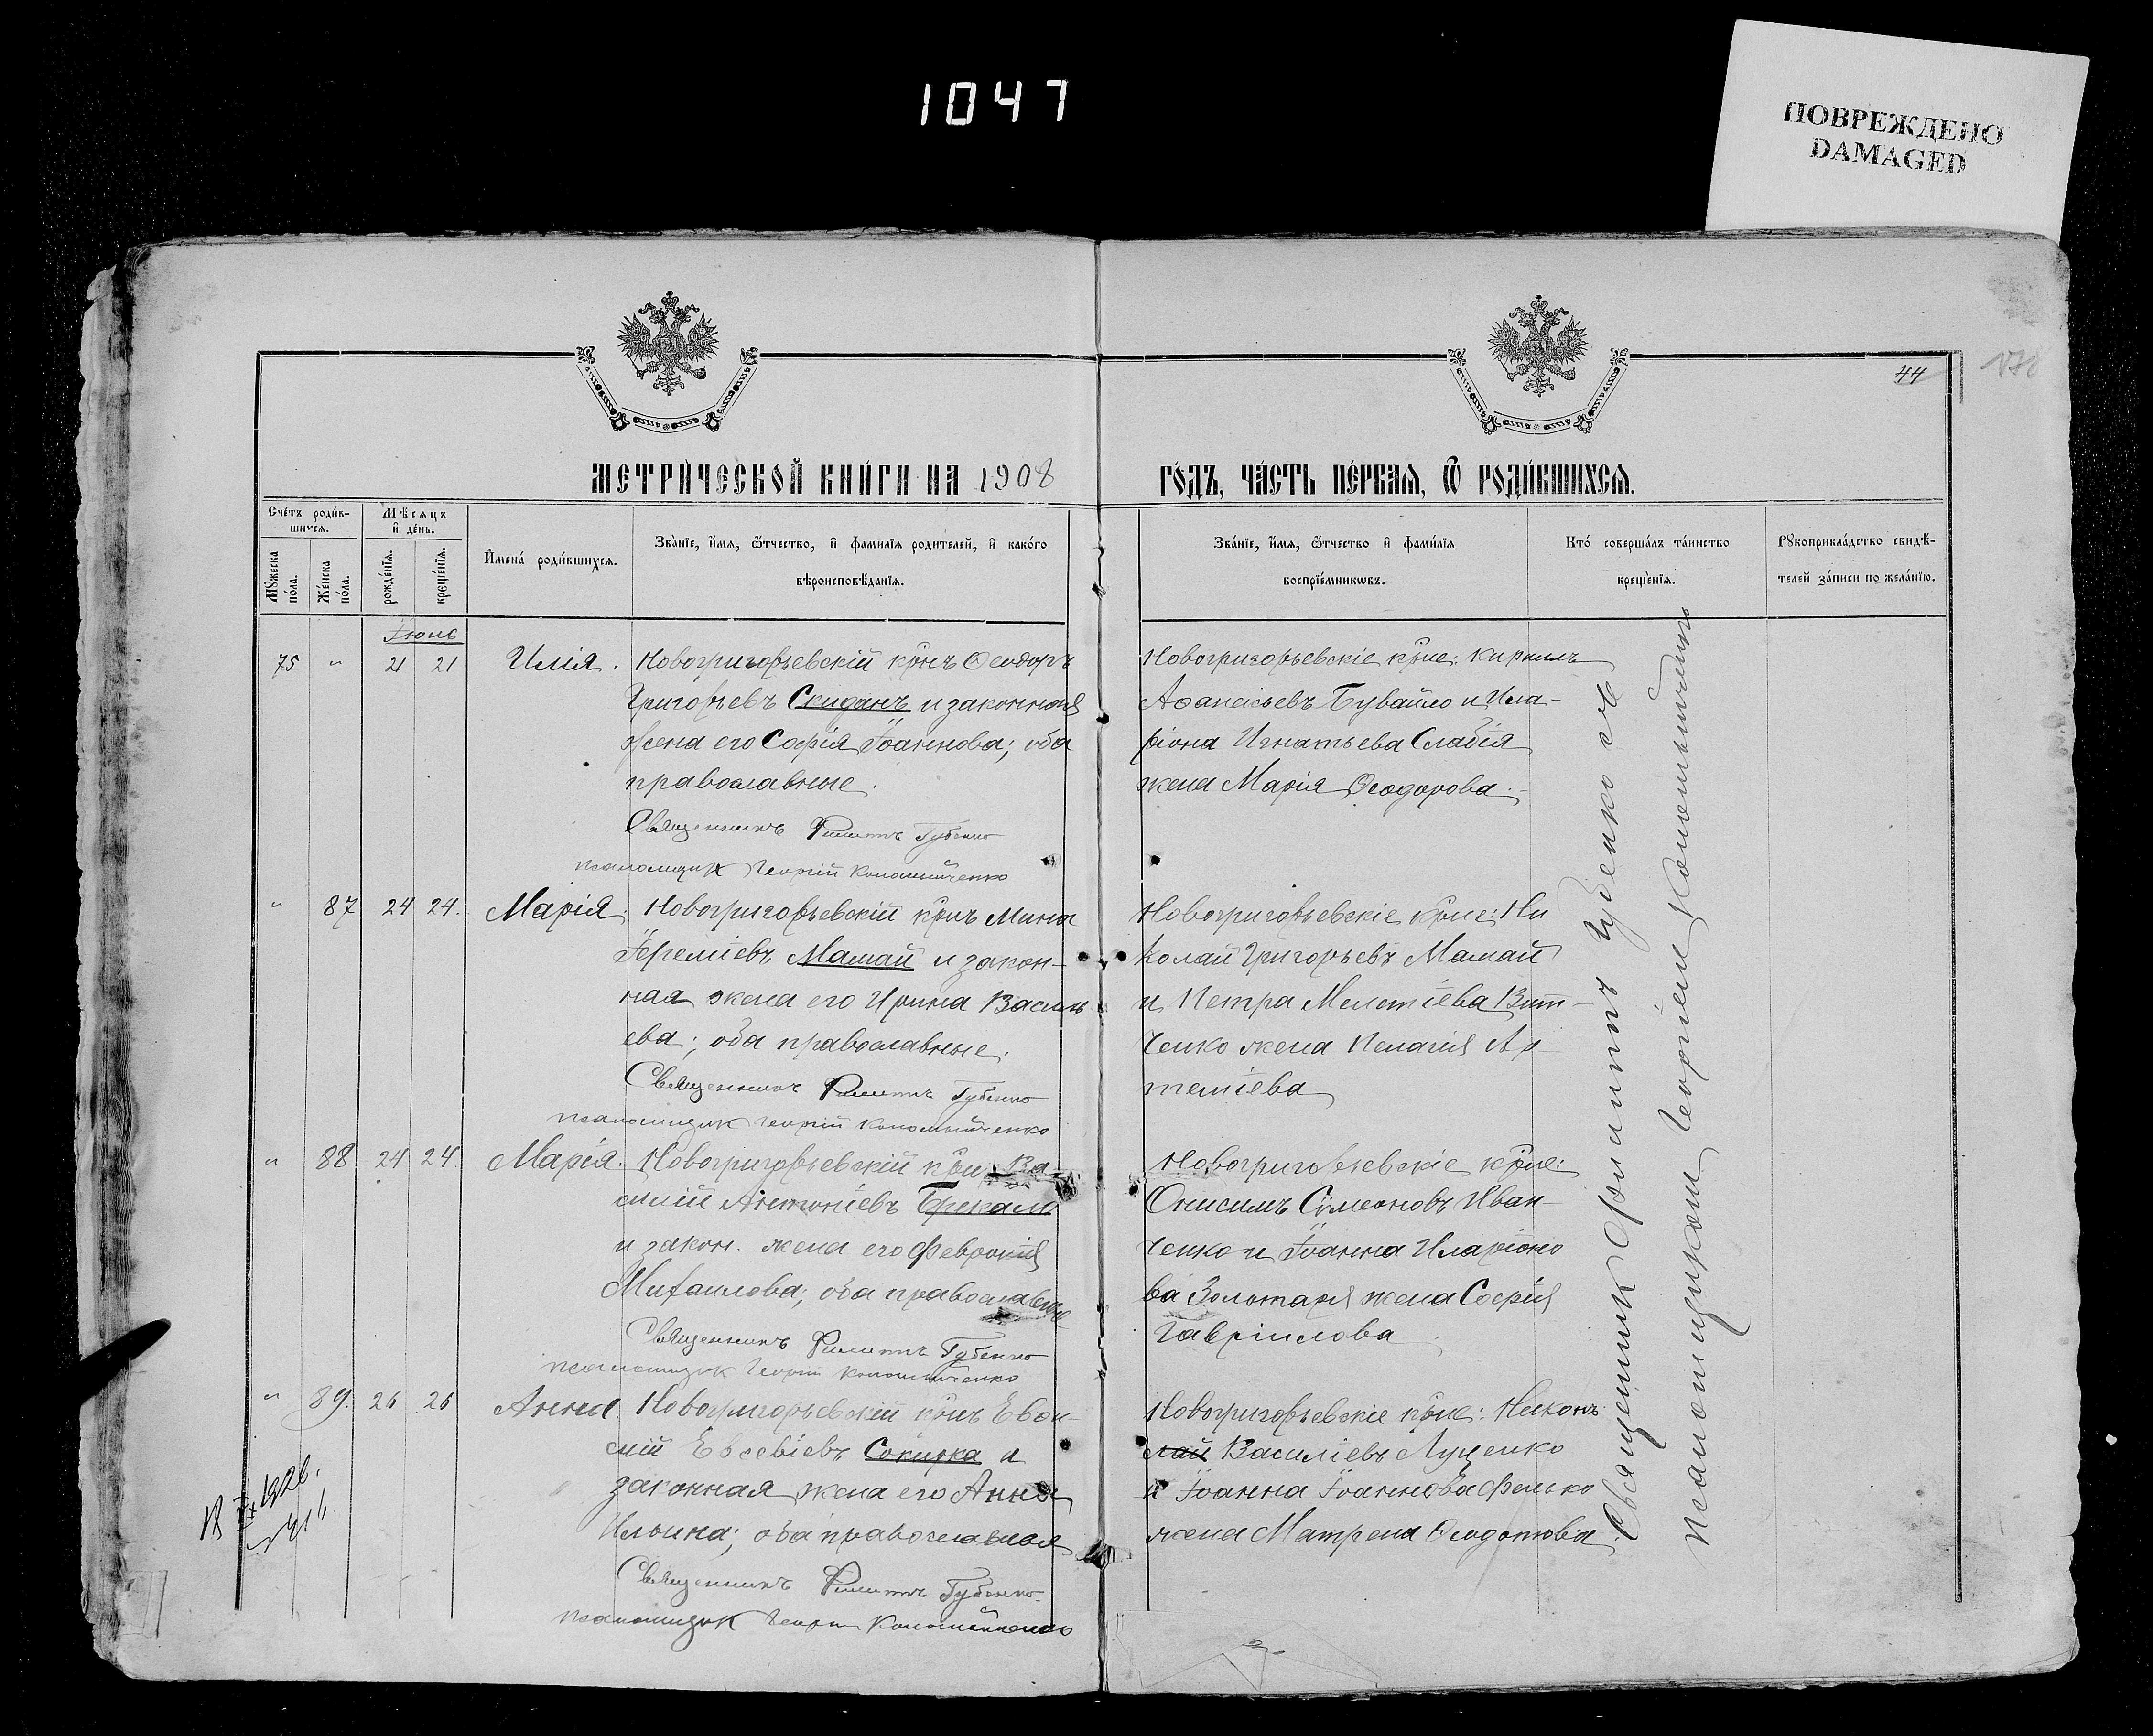 1047
ПОВРЕЖДЕНО
DAMAGED
44
МЕТРИ́ЧЕСКОЙ КНИ́ГИ НА 1908
ГО́ДЪ, ЧА́СТЬ ПЕ́РВАѦ, Ѡ҆ РОДИ́ВШИХСѦ.
Счетъ роди́в-
шихсѧ.
Мѣсѧцъ
и҆ де́нь.
Мꙋжеска
по́ла.
Же́нска
по́ла.
рожде́нїѧ.
креще́нїѧ.
И҆мена̀ роди́вшихсѧ.
Зва́нїе, и҆́мѧ, ѻ҆́тчество, и҆ фамилїѧ родителей, и҆ како́го
вѣроисповѣ́данїѧ.
Зва́нїе, и҆́мѧ, ѻ҆́тчество и҆ фами́лїѧ
воспрїе́мникѡвъ.
Кто̀ соверша́лъ та́инство
креще́нїѧ.
Рꙋкоприкла́дство свидѣ́-
телей за́писи по жела́нїю.
75 " 21 21 Илія. Новогригорьевскій крнъ Ѳеодоръ
Григорьевъ Скиданъ и законная
жена его Софія Іоаннова; оба
православные.
Священникъ Филиппъ Губенко
псаломщикъ Георгій Коломийченко
Новогригорьевскіе крне: Кириллъ
Аѳанасьевъ Бувайло и Ила-
ріона Игнатьева Слабія
жена Марія Ѳеодорова.
" 87 24 24. Марія. Новогригорьевскій крнъ Мина
Іереміевъ Мамай и закон-
ная жена его Ирина Василь
ева; оба православные.
Священникъ Филиппъ Губенко
псаломщикъ Георгій Коломийченко
Новогригорьевскіе крне: Ни
колай Григорьевъ Мамай
и Петра Мелетіева Вит-
ченко жена Пелагія Ар-
теміева
" 88 24 24. Марія. Новогригорьевскій крн. Ва-
силій Антоніевъ
и закон. жена его Февронія
Михаилова; оба православные
Священникъ Филиппъ Губенко
псаломщикъ Георгій Коломийченко
Новогригорьевскіе крне:
Онисимъ Сѵмеоновъ Иван-
ченко и Іоанна Иларіоно
ва Золотаря жена Софія
Гавріилова
" 89. 26 26 Анна. Новогригорьевскій крнъ Евѳи-
мій Евсевіевъ Сокирка и
законная жена его Анна
Ильина; оба православныя
Священникъ Филиппъ Губенко
псаломщикъ Георгій Коломийченко
Новогригорьевскіе крне: Никонъ
лай Василіевъ Луценко
и Іоанна Іоаннова Фенько
жена Матрена Ѳеодотова
Священник Филиппъ Губенко съ
псаломщиком Георгіем Коломийченко